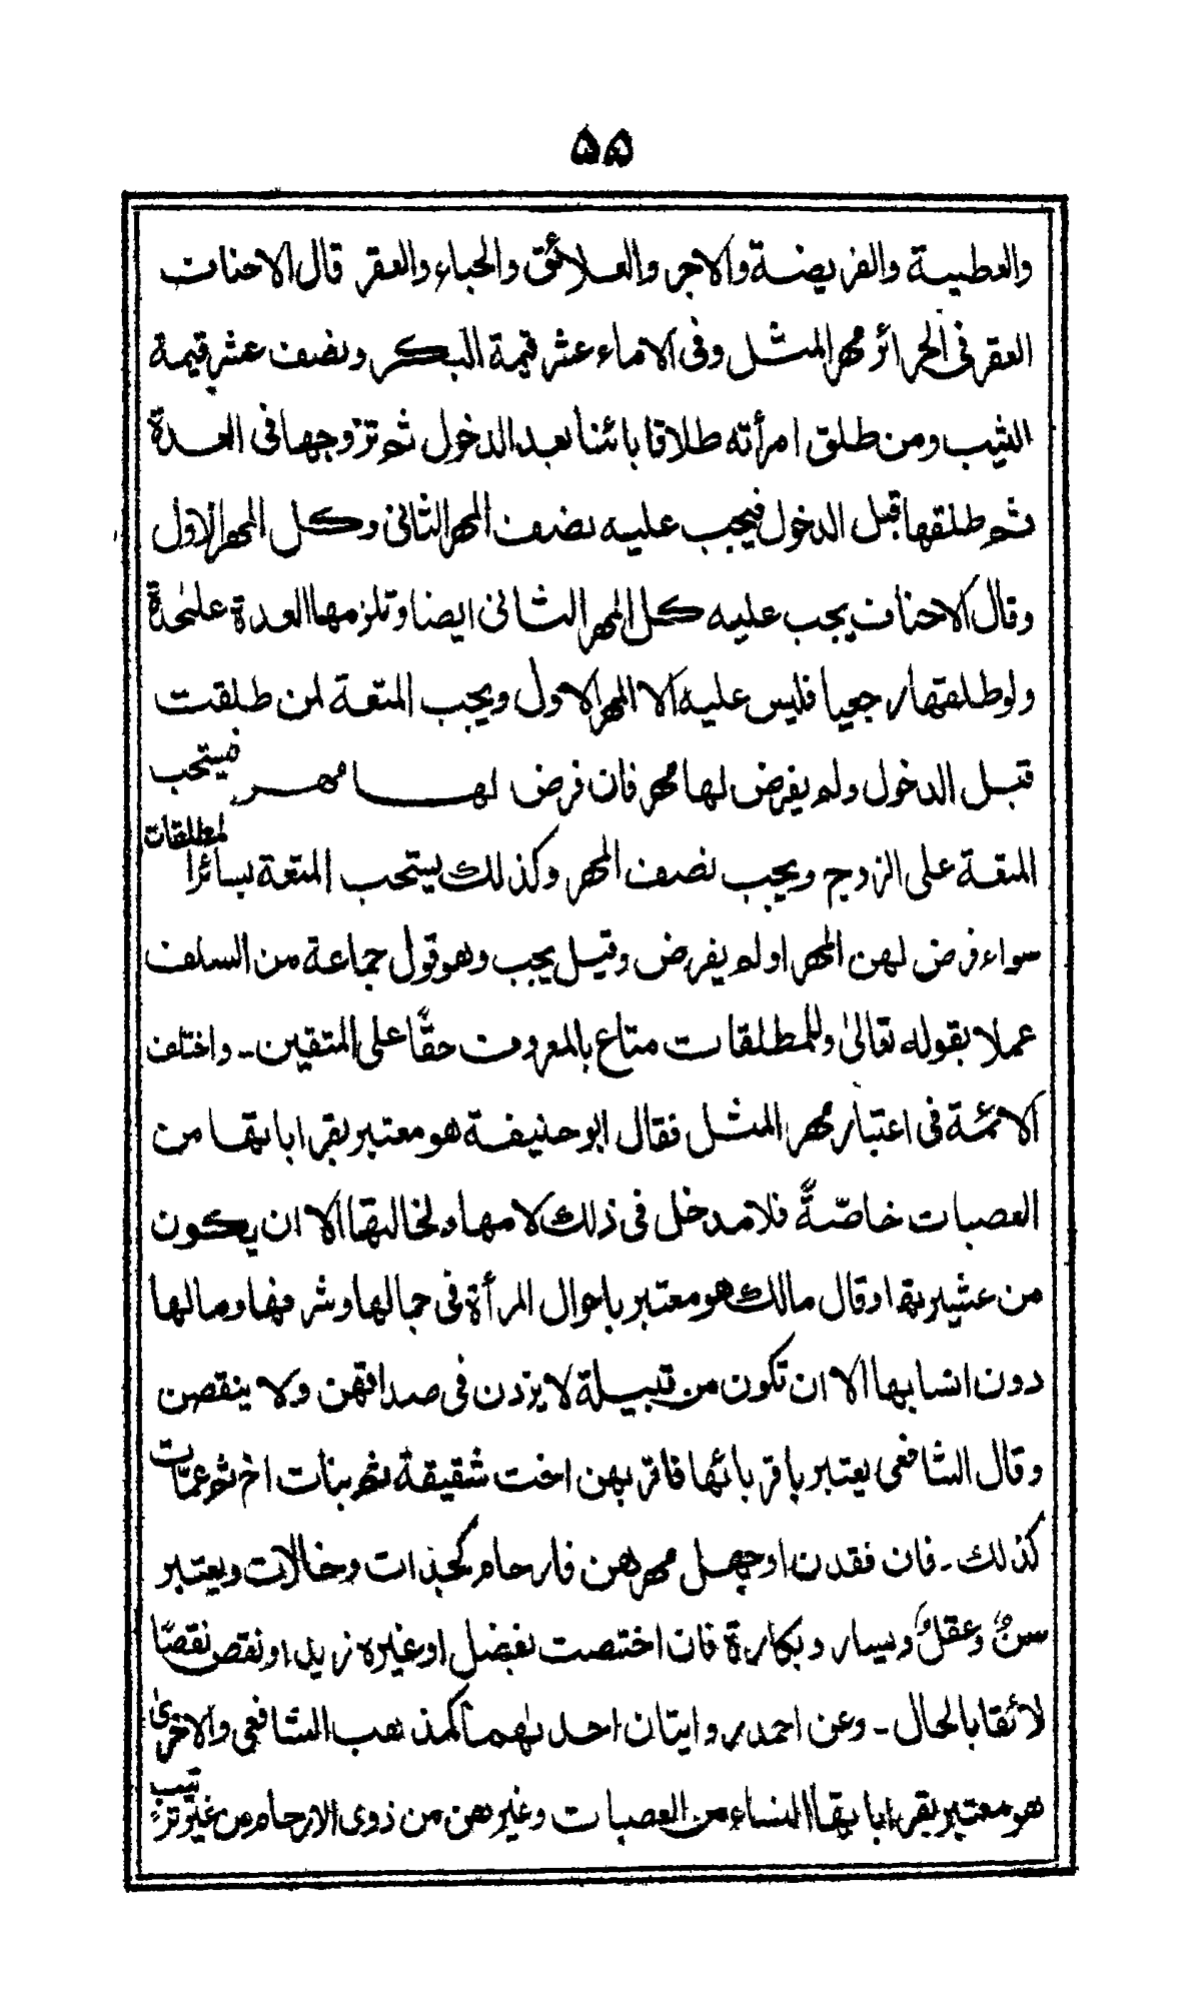 ۵۵
والعطية والفريضة والاجر والعلائق والحباء والعقر قال الاحناف
العقر فى الحرائر مهر المثل وفى الاماء عشر قيمة البكر ونصف عشر قيمة
الثيب ومن طلق امرأته طلاقا بائنا بعد الدخول ثم تزوجها فى العدة
ثم طلقها قبل الدخول فيجب عليه نصف المهر الثانى وكل المهر الاول
وقال الاحناف يجب عليه كل المهر الثانى ايضا وتلزمها العدة علىحدة
ولو طلقها رجعيا فليس عليه الا المهر الاول ويجب المتعة لمن طلقت
قبل الدخول ولم يفرض لها مهر فان فرض لها مهر فيستحب
المتعة على الزوج ويجب نصف المهر وكذلك يستحب المتعة لسائر المطلقات
سواء فرض لهن المهر او لم يفرض وقيل يجب وهو قول جماعة من السلف
عملا بقوله تعالىٰ وللمطلقات متاع بالمعروف حقًّا على المتقين ـ واختلف
الائمة فى اعتبار مهر المثل فقال ابو حنيفة هو معتبر بقراباتها من
العصبات خاصّةً فلا مدخل فى ذلك لامها ولخالتها الا ان يكون
من عشيرتها وقال مالك هو معتبر باحوال المرأة فى جمالها وشرفها ومالها
دون انسابها الا ان تكون من قبيلة لا يزدن فى صداقهن ولا ينقصن
وقال الشافعى يعتبر باقربائها فاقربهن اخت شقيقة ثم بنات اخ ثم عمّات
كذلك ـ فان فقدن او جهل مهرهن فارحام كجدات وخالات ويعتبر
سنٌ وعقلٌ ويسار وبكارة فان اختصت بفضل او غيره زيد او نقص نقصًا
لائقا بالحال ـ وعن احمد روايتان احدٰهما كمذهب الشافعى والاخرىٰ
هو معتبر بقراباتها النساء من العصبات وغيرهن من ذوى الارحام من غير ترتيب